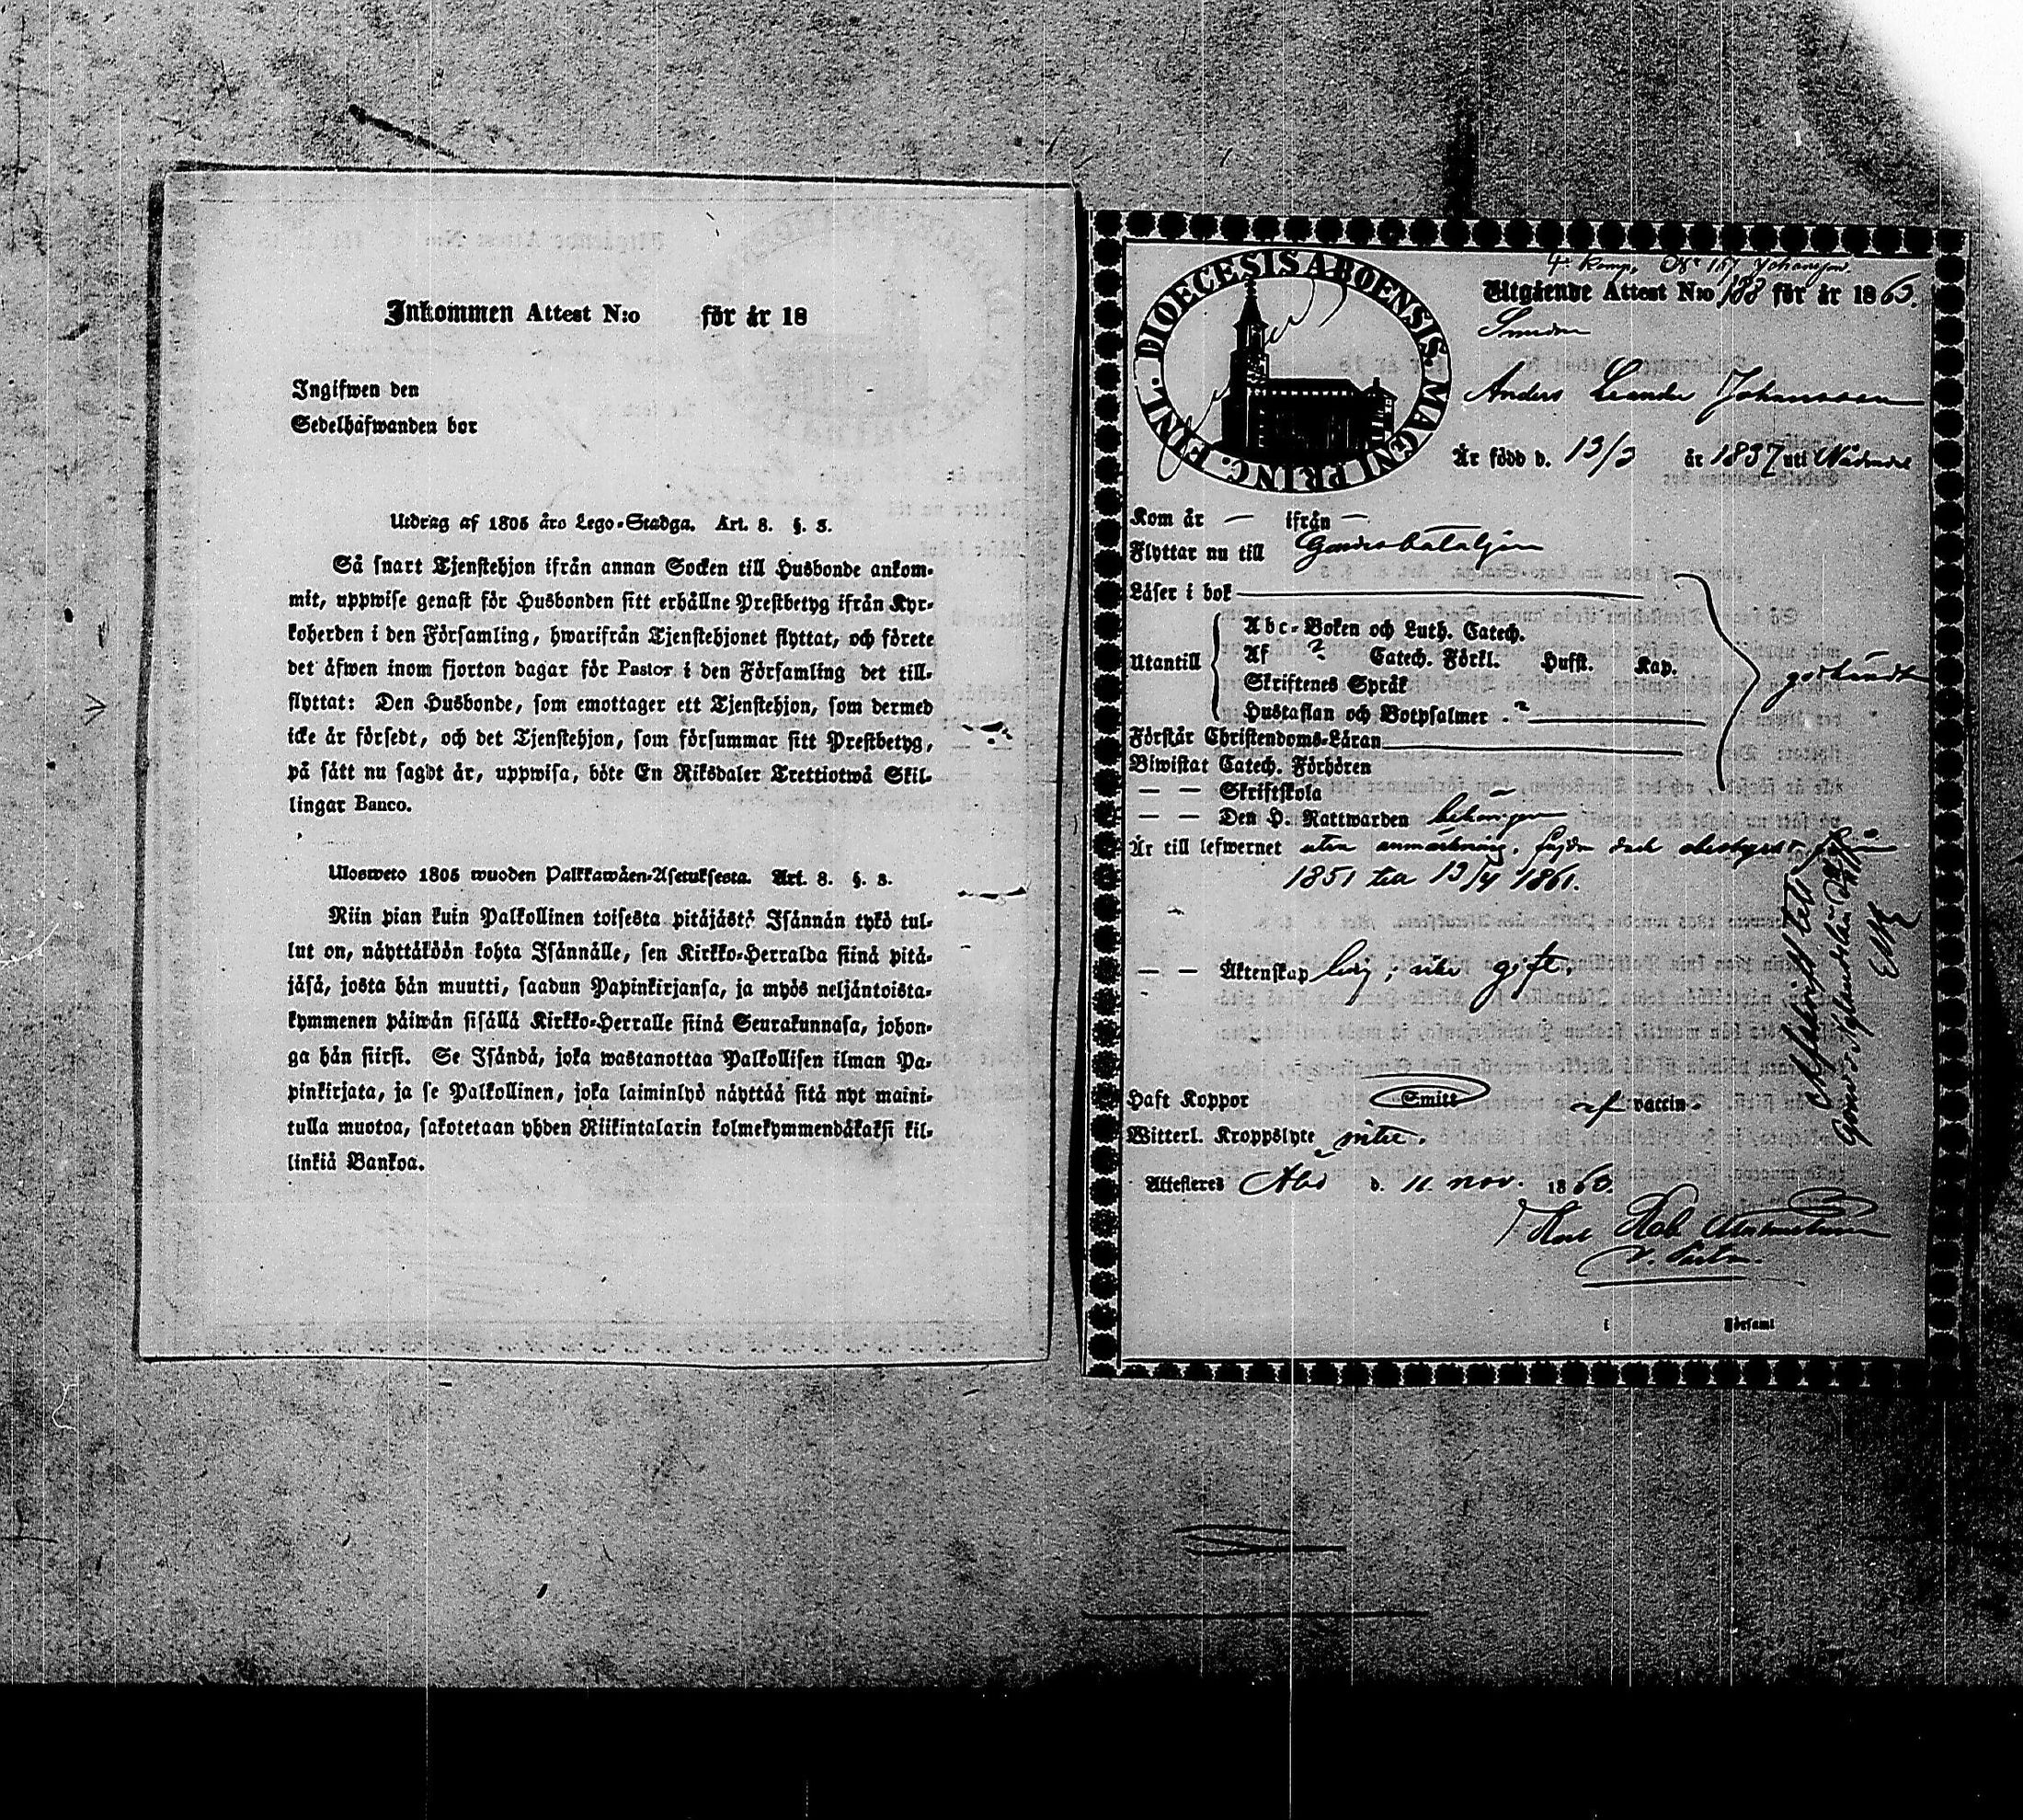 Inkommen Attest N:o för år 18
Ingifwen den
Sedelhafwanden bor
Utdrag af 1805 års Lego-Stadga. Art. 8. §. 3.
Så snart Tjenstehjon ifrån annan Socken till Husbonde ankom-
mit, uppwise genast för Husbonden sitt erhållne Prestbetyg ifrån Kyr-
koherden i den Församling, hwarifrån Tjenstehjonet flyttat, och förete
det äfwen inom fjorton dagar för Pastor i den Församling det till-
flyttat: Den Husbonde, som emottager ett Tjenstehjon, som dermed
icke är försedt, och det Tjenstehjon, som försummar sitt Prestbetyg,
på sätt nu sagdt är, uppwisa, böte En Riksdaler Trettiotwå Skil-
lingar Banco.
Ulosweto 1805 wuoden Palkkawäen-Asetuksesta. Art. 8. §. 3.
Niin pian kuin Palkollinen toisesta pitäjästä Isännän tykö tul-
lut on, näyttäköön kohta Isännälle, sen Kirkko-Herralda siinä pitä-
jäsä, josta hän muutti, saadun Papinkirjansa, ja myös neljäntoista-
kymmenen päiwän sisällä Kirkko-Herralle siinä Seurakunnasa, johon-
ga hän siirsi. Se Isändä, joka wastanottaa Palkollisen ilman Pa-
pinkirjata, ja se Palkollinen, joka laiminlyö näyttää sitä nyt maini-
tulla muotoa, sakotetaan yhden Riikintalarin kolmekymmendäkaksi kil-
linkiä Bankoa.
DIOECESIS ABOENSIS. MAGNI PRINC. FINL.
4e Komp. No Johansson.
Utgående Attest N:o 188 för år 1863.
Anders Leander Johansson
Är född d. 13/3 år 1837 uti Nådendal
Kom år — ifrån —
Flyttar nu till Gardesbataljon
Läser i bok
Utantill
Abc-Boken och Luth. Catech.
Af Catech. Förkl. Husst. Kap.
Skriftenes Språk
Hustaflan och Botpsalmer
godkändt
Förstår Christendoms-Läran
Biwistat Catech. Förhören
— — Skriftskola
— — Den H. Nattwarden behörigen
Är till lefwernet utan anmärkning, dock
1851 till 13/4 1861.
— — Äktenskap ledig; icke gift.
Haft Koppor Smitt af vaccin.
Witterl. Kroppslyte intet.
Attesteres Åbo d. 11 nov. 1863.
Karl Rob.
v. Pastor.
i Församl